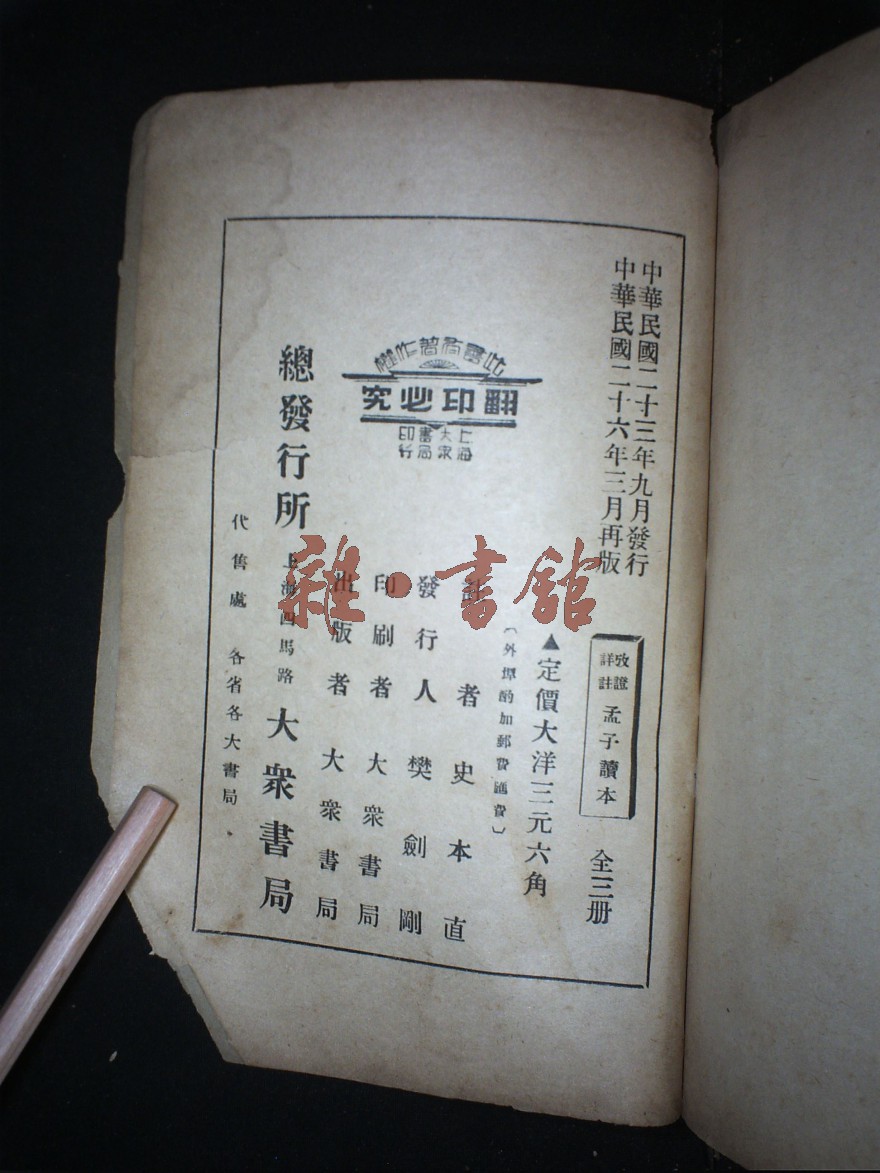 中華民國二十三年九月發行
中華民國二十六年三月再版
攷證
詳註
孟子讀本
全三册
▲定價大洋三元六角
(外埠酌加郵費匯費)
註者 史本直
發行人 樊劍剛
印刷者 大衆書局
出版者 大衆書局
此書有著作權
翻印必究
上海
大衆
書局
印行
總發行所 上海四馬路 大衆書局
代售處 各省各大書局
雜·書館